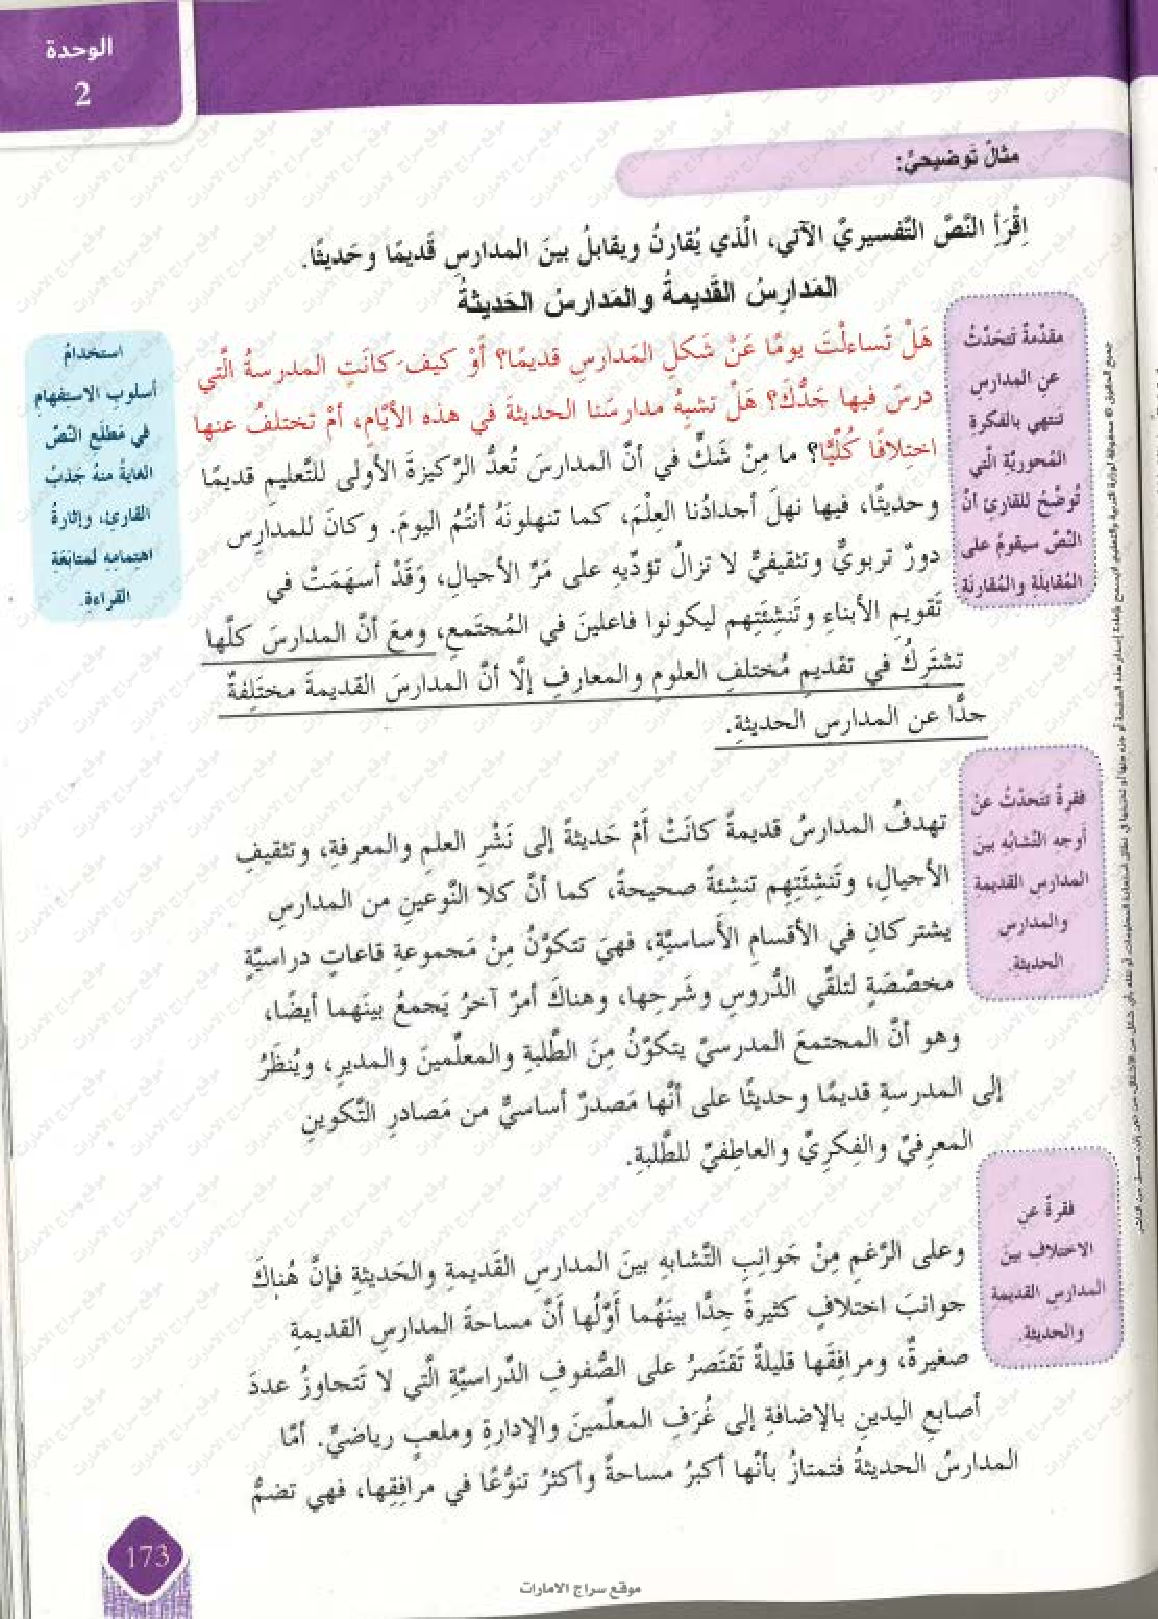 الوحدة
2
مثالٌ تَوضيحيٌّ:
اِقْرَأِ النَّصَّ التَّفسيريَّ الآتي، الَّذي يُقارنُ ويقابلُ بينَ المدارسِ قَديمًا وحَديثًا.
المَدارِسُ القَديمةُ والمَدارسُ الحَديثةُ
مقدّمةٌ تتحَدّثُ
عنِ المدارس
تنتهي بالفكرةِ
المِحوريّةِ الّتي
تُوضّحُ للقارئِ أنّ
النّصّ سيقومُ على
المُقابلَةِ والمُقارنَة
استخدامُ
أسلوبِ الاستفهامِ
في مَطلَعِ النّصّ
الغايةُ منهُ جَذبُ
القارئِ، وإثارةُ
اهتمامِهِ لمتابَعَةِ
القراءةِ.
هَلْ تَساءلْتَ يومًا عَنْ شَكلِ المَدارسِ قديمًا؟ أَوْ كيفَ كانَتِ المدرسةُ الَّتي
درسَ فيها جَدُّكَ؟ هَلْ تشبِهُ مدارسَنا الحديثةَ في هذه الأيَّامِ، أمْ تختلفُ عنها
اختِلافًا كُليًّا؟ ما مِنْ شَكٍّ في أنَّ المدارسَ تُعدُّ الرَّكيزةَ الأولى للتَّعليمِ قديمًا
وحديثًا، فيها نهلَ أجدادُنا العِلْمَ، كما تنهلونَهُ أنتُمُ اليومَ. وكانَ للمدارسِ
دورٌ تربويٌّ وتثقيفيٌّ لا تزالُ تؤدّيهِ على مَرِّ الأجيالِ، وَقَدْ أسهَمَتْ في
تَقويمِ الأبناءِ وتَنشِئَتِهم ليكونوا فاعلينَ في المُجتَمعِ، ومعَ أنَّ المدارسَ كلَّها
تشتَرِكُ في تقديمِ مُختلفِ العلومِ والمعارفِ إلَّا أنَّ المدارسَ القديمةَ مختَلِفةٌ
جدًّا عن المدارسِ الحديثةِ.
فقرةٌ تتحدّثُ عنْ
أوجهِ التّشابُهِ بينَ
المدارسِ القديمةِ
والمدارسِ
الحديثة.
تهدفُ المدارسُ قديمةً كانَتْ أَمْ حَديثةً إلى نَشْرِ العلمِ والمعرفةِ، وتثقيفِ
الأجيالِ، وتَنشِئَتِهِم تنشئةً صحيحةً، كما أنَّ كلا النَّوعينِ من المدارسِ
يشتركانِ في الأقسامِ الأَساسيَّةِ، فهيَ تتكوَّنُ مِنْ مَجموعةِ قاعاتٍ دراسيَّةٍ
مخصَّصَةٍ لتلقِّي الدُّروسِ وشَرحِها، وهناكَ أمرٌ آخرُ يَجمعُ بينَهما أيضًا،
وهو أنَّ المجتمعَ المدرسيَّ يتكوَّنُ مِنَ الطَّلبةِ والمعلّمينَ والمديرِ، ويُنظَرُ
إلى المدرسةِ قديمًا وحديثًا على أنَّها مَصدرٌ أساسيٌّ من مَصادرِ التَّكوينِ
المعرفيِّ والفِكريِّ والعاطِفيِّ للطَّلبةِ.
فقرةٌ عنِ
الاختلافِ بينَ
المدارسِ القديمةِ
والحديثة.
وعلى الرَّغمِ مِنْ جَوانِبِ التَّشابهِ بينَ المدارسِ القَديمةِ والحَديثةِ فإنَّ هُناكَ
جوانبَ اختلافٍ كثيرةً جدًّا بينَهُما أوَّلُها أنَّ مساحةَ المدارسِ القديمةِ
صغيرةٌ، ومرافِقَها قليلةٌ تَقتَصرُ على الصُّفوفِ الدِّراسيَّةِ الَّتي لا تَتَجاوزُ عددَ
أصابعِ اليدينِ بالإضافةِ إلى غُرَفِ المعلّمينَ والإدارةِ وملعبٍ رياضيٍّ. أمَّا
المدارسُ الحديثةُ فتمتازُ بأنَّها أكبرُ مساحةً وأكثرُ تنوُّعًا في مرافِقِها، فهي تضمُّ
173
موقع سراج الامارات